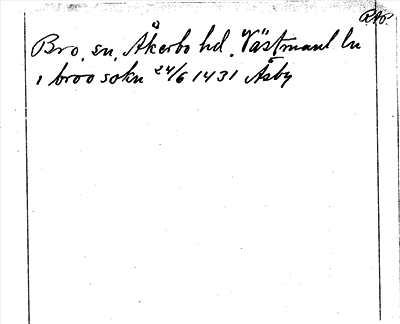 RAp.
Bro, sn, Åkerbo hd. Västmanl ln
i broo sokn 24/6 1431 Åsby